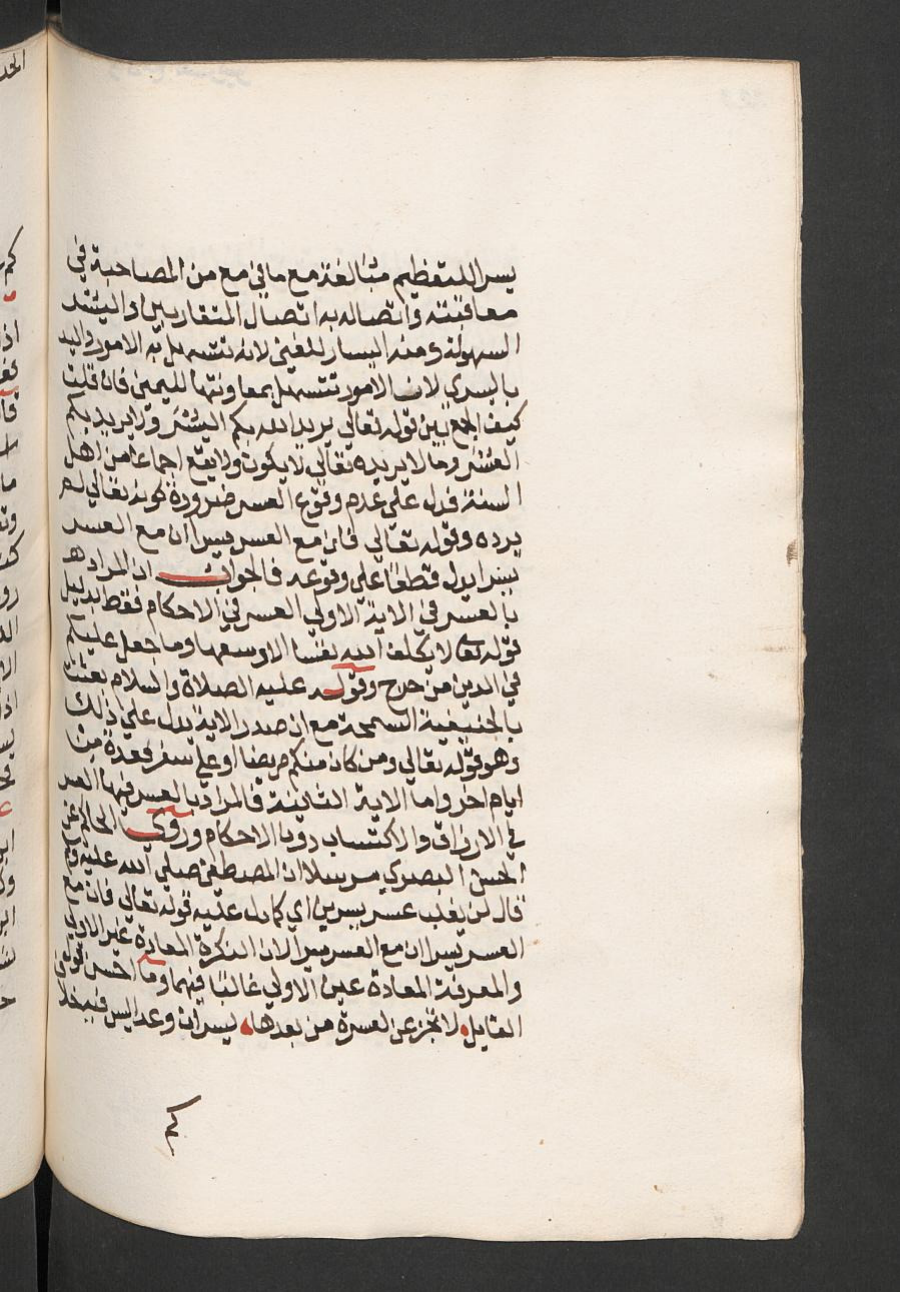 يسرا للتعظيم مبالغة مع ما في مع من المصاحبة في
معاقبته واتصاله به اتصال المتقاربين او اليسر
السهولة ومنه اليسار للغنى لانه تتسهل به الامور واليد
باليسرى لان الامور تتسهل بمعاونتها لليمين فان قلت
كيف الجمع بين قوله تعالى يريد الله بكم اليسر ولا يريد بكم
العسر وما لا يريده تعالى لا يكون ولا يقع اجماعا من اهل
السنة فدل على عدم وقوع العسر ضرورة كونه تعالى لم
يرده وقوله تعالى فان مع العسر يسرا ان مع العسر
يسرا يدل قطعا على وقوعه فالجواب ان المراد
بالعسر في الاية الاولى العسر في الاحكام فقط بدليل
قوله تعا لا يكلف الله نفسا الا وسعها وما جعل عليكم
في الدين من حرج وقوله عليه الصلاة والسلام بعثت
بالحنيفية السمحة مع ان صدر الاية يدل على ذلك
وهو قوله تعالى ومن كان منكم مريضا او على سفر فعدة من
ايام اخر واما الاية الثانية فالمراد بالعسر فيها العسر
في الارزاق والاكتساب دون الاحكام وروى الحاكم عن
الحسن البصري مرسلا ان المصطفى صلى الله عليه وسلم
قال لن يغلب عسر يسرين اي كما دل عليه قوله تعالى فان مع
العسر يسرا ان مع العسر يسرا لان النكرة المعادة غير الاولى
والمعرفة المعادة عين الاولى غالبا فيهما وما احسن قول
القايل لا تجزعن لعسرة من بعدها يسران وعد ليس فيه خلا